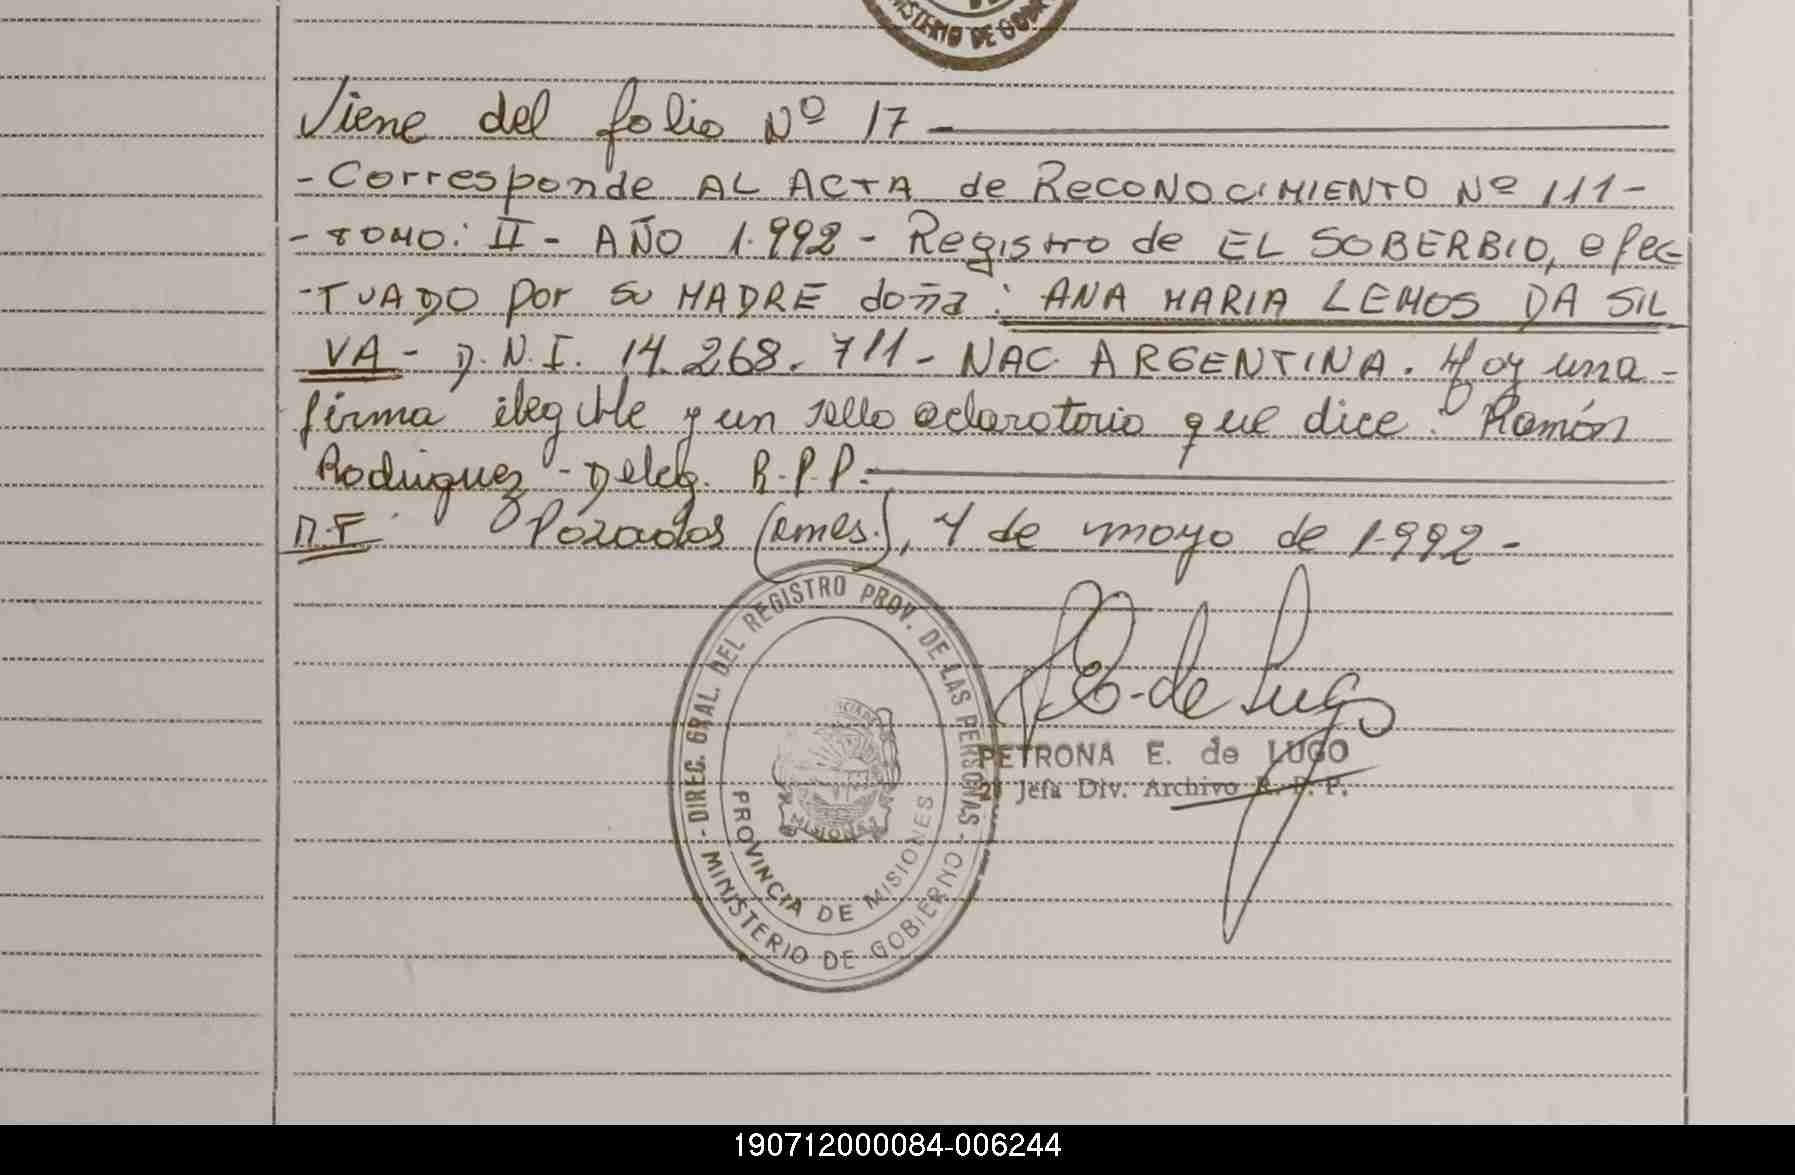 NISTERIO DE GOB
Viene del folio Nº 17
- Corresponde AL ACTA de RECONOCIMIENTO Nº 111 -
- TOMO: II - AÑO 1.992 - Registro de EL SOBERBIO, efec
- TUADO por su MADRE doña: ANA MARIA LEMOS DA SIL
VA - D.N.I. 14.268.711 - NAC. ARGENTINA. Hay una -
firma ilegible y un sello aclaratorio que dice: Ramón
Rodriguez - Deleg. R.P.P.
Posadas (Mnes.), 4 de mayo de 1.992 -
- DIREC. GRAL. DEL REGISTRO PROV. DE LAS PERSONAS -
MINISTERIO DE GOBIERNO
PROVINCIA DE MISIONES
MISIONES
de Lugo
PETRONA E. de LUGO
2ª Jefa Div. Archivo R. P. P.
190712000084-006244